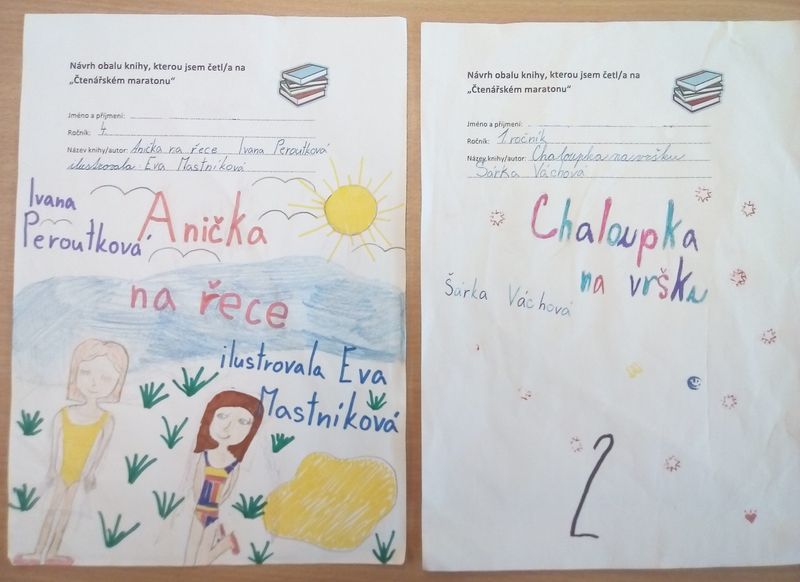 Návrh obalu knihy, kterou jsem četl/a na
„Čtenářském maratonu“
Jméno a příjmení:
Ročník: 4.
Název knihy/autor: Anička na řece Ivana Peroutková
ilustrovala Eva Mastníková
Ivana
Peroutková
Anička
na řece
ilustrovala Eva
Mastníková
Návrh obalu knihy, kterou jsem četl/a na
„Čtenářském maratonu“
Jméno a příjmení:
Ročník: 1 ročník
Název knihy/autor: Chaloupka na vršku
Šárka Váchová
Chaloupka
na vršku
Šárka Váchová
2